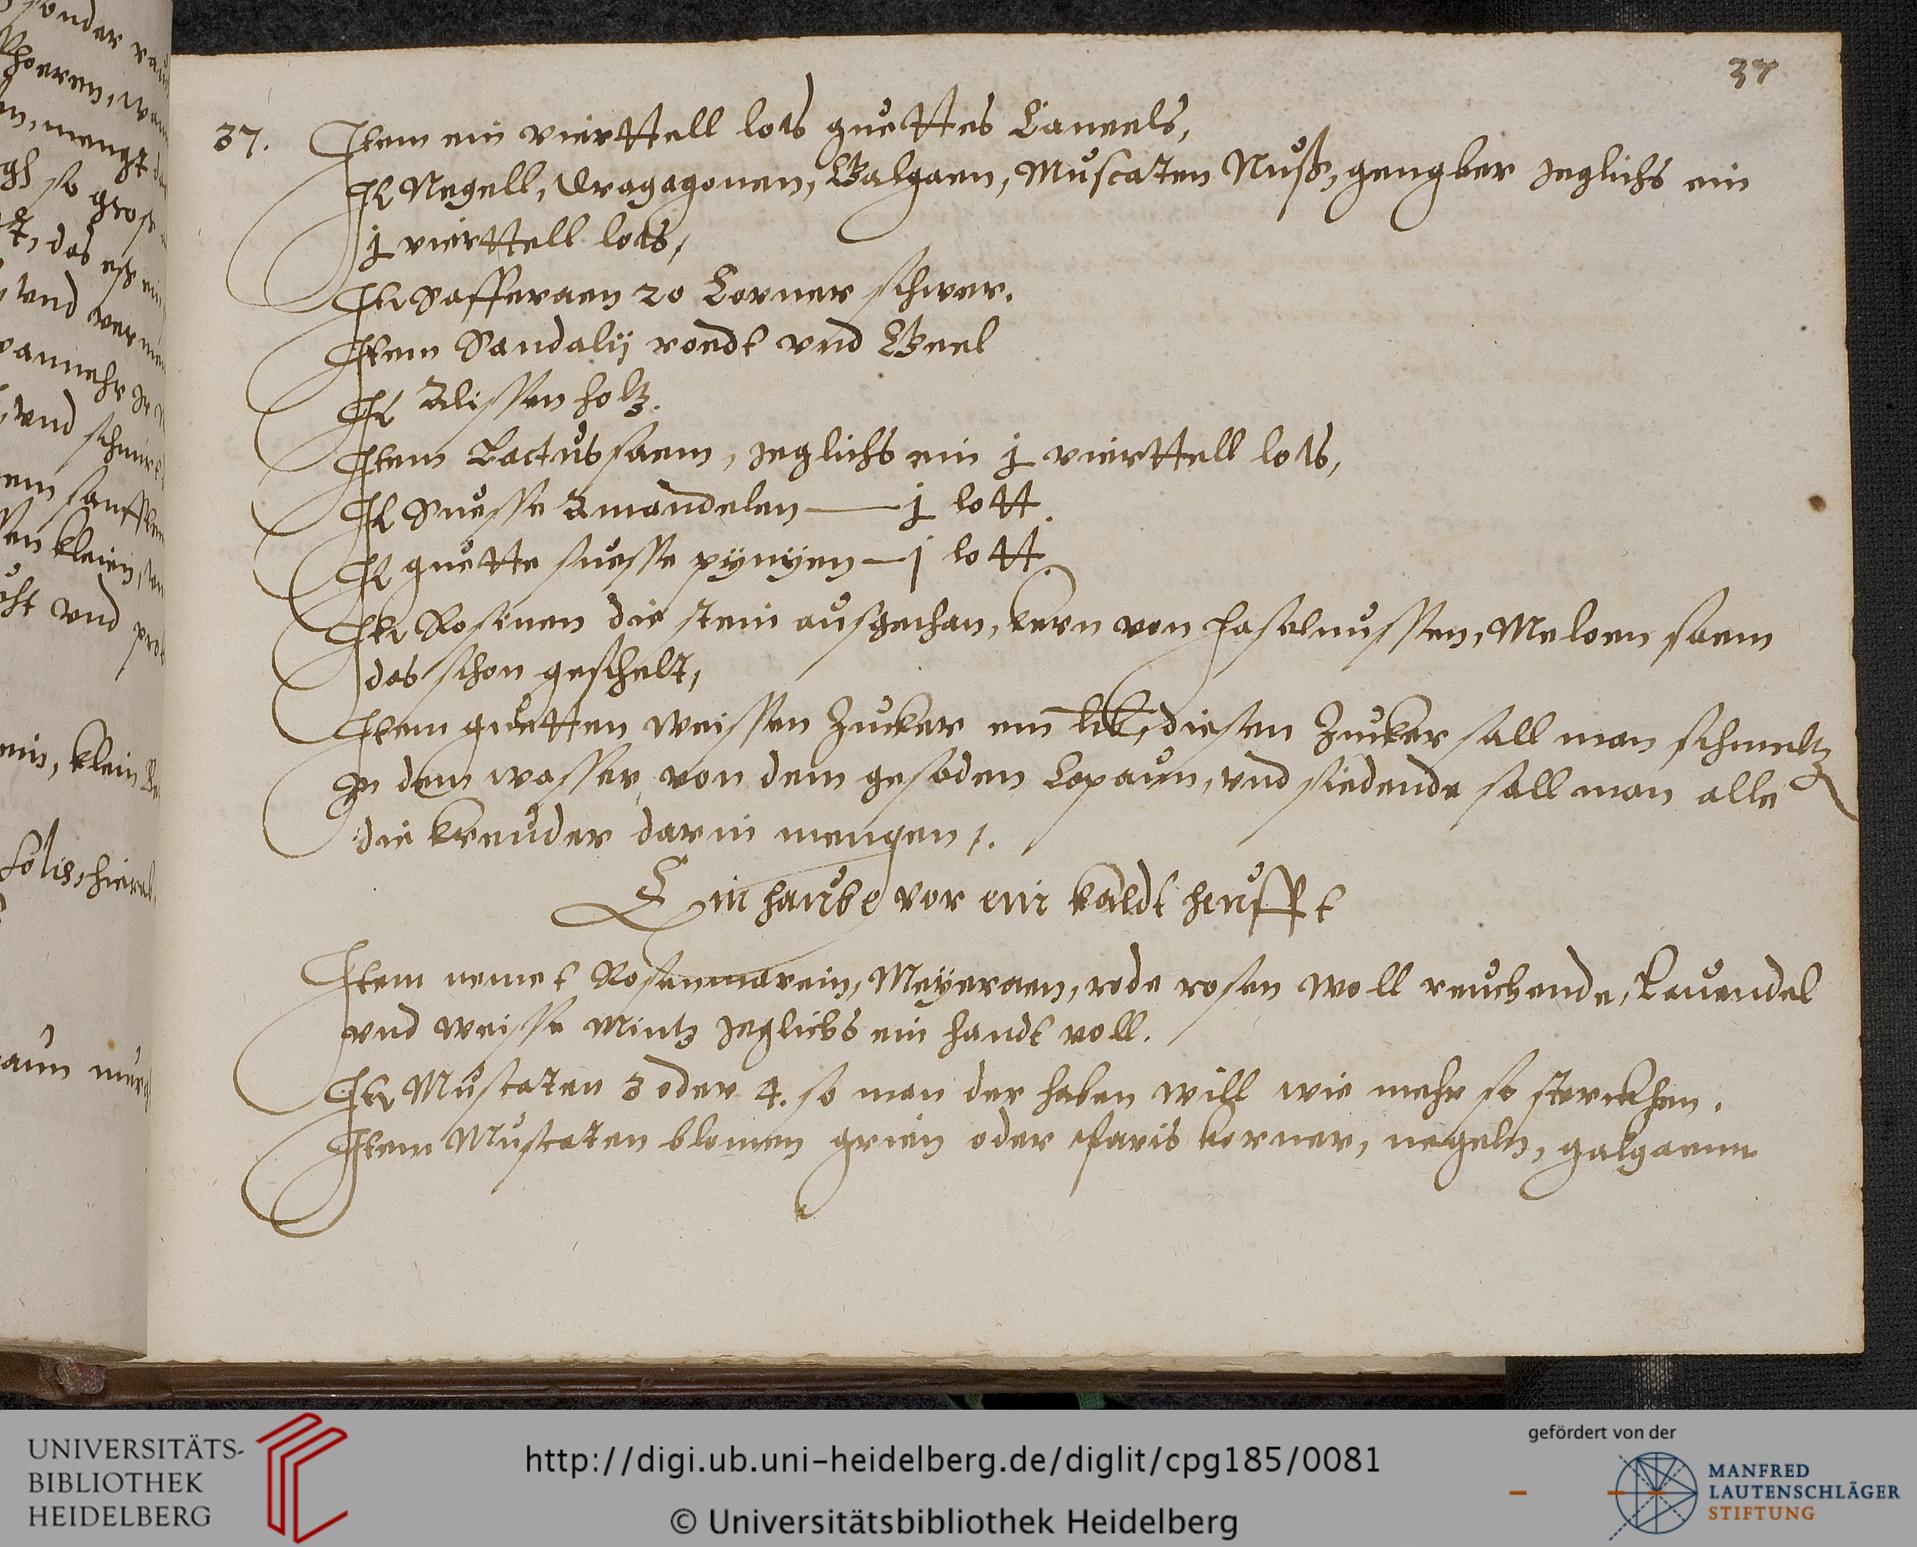 37
37. Item ein vierttell lots guettes Caneels,
It Negell, dragagonen, Galgaen, Muscaten Nuß, gengber jeglichs ein
j vierttell lots,
Ite Safferaen 20 Corner schwer.
Item Sandalij roedt vnd Geel
It Alissen holtz.
Item Lactussaem, jeglichs ein j vierttell lots,
It Suesse Amandelen — j lott.
It guette suesse pynyen — j lott.
Ite Rosinen die stein ausgethan, kern von haselnussen, Meloen saem
das schon geschelt,
Item guetten weissen Zucker ein diesen Zucker sall man schmeltz
In dem wasser von dem gesoden Capaun, vnd siedende sall man alle
die kreuder darin mengen /.
Ein haube vor ein kaldt heufft
Item nemet Rosenmarein, Meyeraen, rode rosen woll reuchende, Lauendel
vnd weisse Mintz jeglichs ein handt voll.
Ite Muscaten 3 oder 4. so man der haben will wie mehr so sterckher.
Item Muscaten blomen grein oder Paris korner, negeln, galgaenn
sonder
mengt
so gros
das
vnd
vnd
kleien
vnd
klein
UNIVERSITÄTS-
BIBLIOTHEK
HEIDELBERG
http://digi.ub.uni-heidelberg.de/diglit/cpg185/0081
© Universitätsbibliothek Heidelberg
gefördert von der
MANFRED
LAUTENSCHLÄGER
STIFTUNG